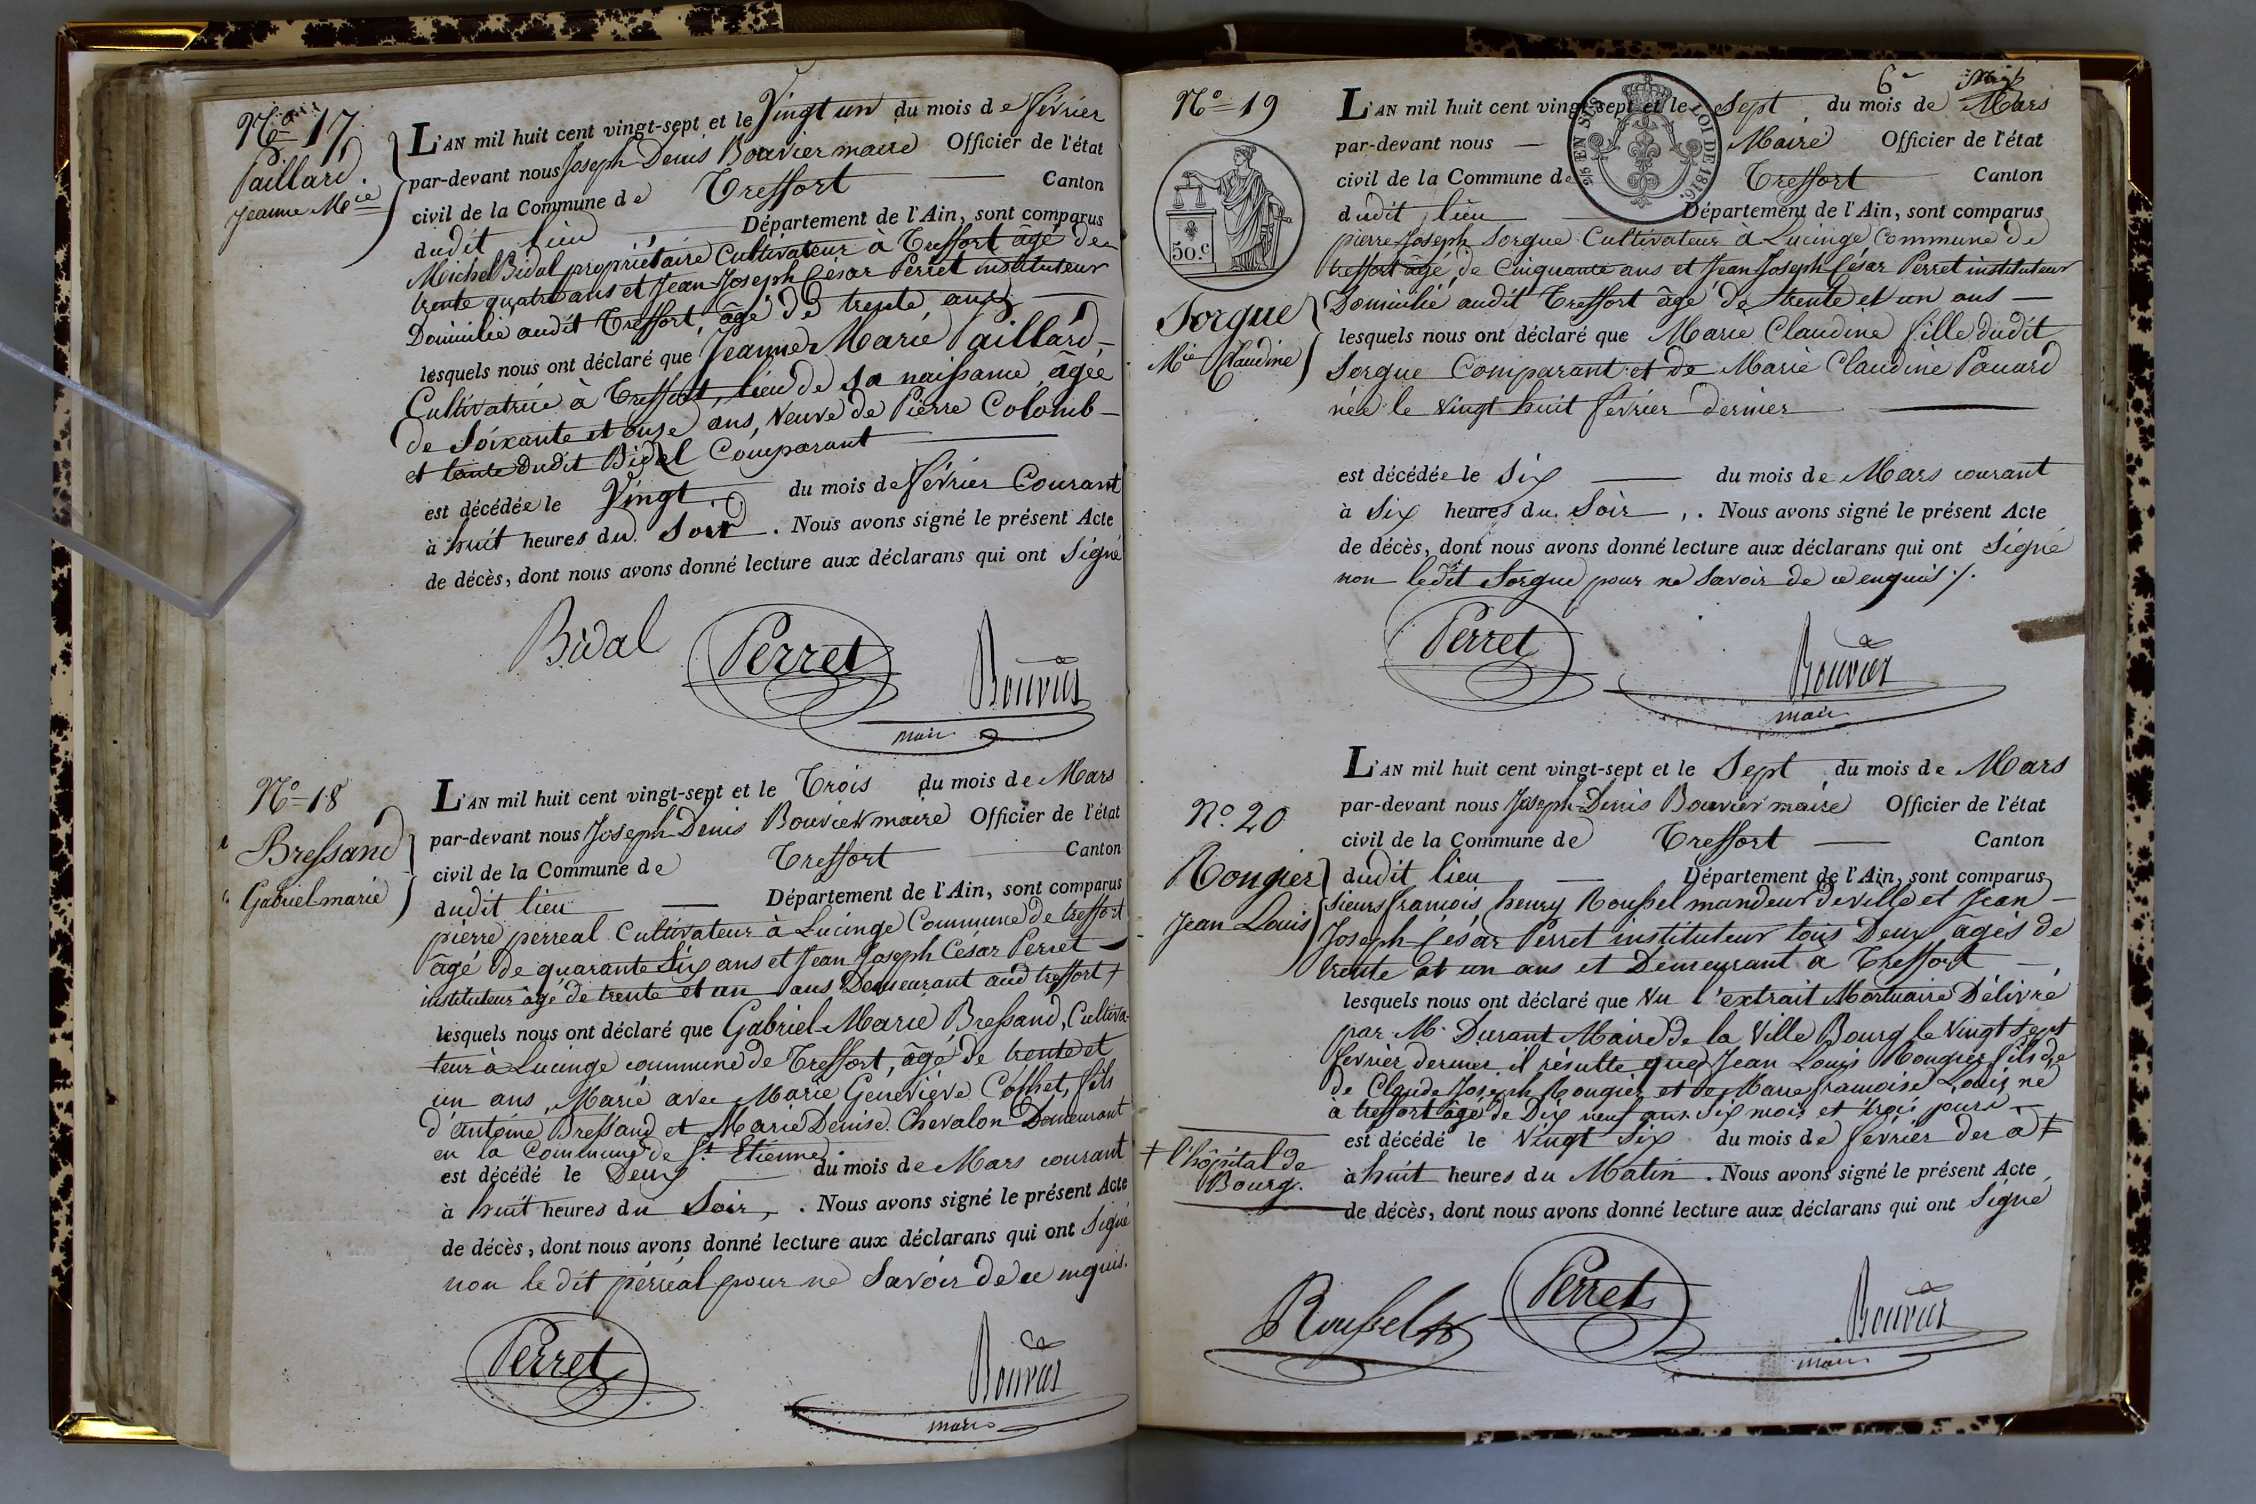 N.º 17
Paillard.
Jeanne M.ie
L'AN mil huit cent vingt-sept et le Vingt un du mois de février
par-devant nous Joseph Denis Bouvier maire Officier de l'état
civil de la Commune de Treffort — Canton
dudit lieu — Département de l'Ain, sont comparus
Michel Bidal propriétaire Cultivateur à Treffort âgé de
trente quatre ans et Jean Joseph César Perret instituteur
Domicilié audit Treffort, âgé de trente ans —
lesquels nous ont déclaré que Jeanne Marie Paillard,
Cultivatrice à Treffort, lieu de sa naissance, âgée
de Soixante et onze ans, Veuve de Pierre Colomb
et tante dudit Bidal Comparant —
est décédée le Vingt du mois de février Courant
à huit heures du Soir. Nous avons signé le présent Acte
de décès, dont nous avons donné lecture aux déclarans qui ont Signé
Bidal Perret Bouvier
maire
N.º 18
Bressand
Gabriel-marie
L'AN mil huit cent vingt-sept et le Trois du mois de Mars
par-devant nous Joseph-Denis Bouvier maire Officier de l'état
civil de la Commune de Treffort — Canton
dudit lieu — Département de l'Ain, sont comparus
pierre perreal Cultivateur à Lucinge Commune de treffort
âgé de quarante Six ans et Jean Joseph César Perret
instituteur âgé de trente et un ans Demeurant aud treffort +
lesquels nous ont déclaré que Gabriel-Marie Bressand, Cultiva-
teur à Lucinge commune de Treffort, âgé de trente et
un ans, Marié avec Marie Geneviève fils
d'antoine Bressand et Marie Denise Chevalon Demeurant
en la Commune de St. Etienne
est décédé le Deux du mois de Mars courant
à huit heures du Soir, . Nous avons signé le présent Acte
de décès, dont nous avons donné lecture aux déclarans qui ont Signé
non le dit perréal pour ne Savoir de ce enquis.
Perret Bouvier
maire
6e
N.º 19
50.c
EN SUS
LOI DE 1816.
Sorgue
M.ie Claudine
L'AN mil huit cent vingt-sept et le Sept du mois de Mars
par-devant nous — Maire Officier de l'état
civil de la Commune de Treffort Canton
dudit lieu — Département de l'Ain, sont comparus
pierre Joseph Sorgue Cultivateur à Lucinge Commune de
treffort âgé de Cinquante ans et Jean Joseph César Perret instituteur
Domicilié audit Treffort âgé de trente et un ans —
lesquels nous ont déclaré que Marie Claudine fille dudit
Sorgue Comparant et de Marie Claudine Pauard
née le vingt huit février dernier —
est décédée le Six — du mois de Mars courant
à Six heures du Soir, . Nous avons signé le présent Acte
de décès, dont nous avons donné lecture aux déclarans qui ont Signé
non ledit Sorgue pour ne savoir de ce enquis ./.
Perret Bouvier
maire
N.º 20
Rongier
Jean Louis
L'AN mil huit cent vingt-sept et le Sept du mois de Mars
par-devant nous Joseph-Denis Bouvier maire Officier de l'état
civil de la Commune de Treffort — Canton
dudit lieu — Département de l'Ain, sont comparus
Sieurs françois henry Roussel mandeur de ville et Jean
Joseph-César Perret instituteur tous Deux âgés de
trente et un ans et Demeurant à Treffort —
lesquels nous ont déclaré que Vu l'extrait Mortuaire Délivré
par M. Durant Maire de la Ville Bourg le Vingt sept
février dernier il résulte que Jean Louis Rongier fils de
de Claude Joseph Rongier et de Marie françoise Louis né
à treffort âgé de Dix neuf ans Six mois et trois jours —
est décédé le Vingt Six du mois de février der à ‡
à huit heures du Matin. Nous avons signé le présent Acte
de décès, dont nous avons donné lecture aux déclarans qui ont Signé
‡ l'hôpital de
Bourg.
Roussel Perret Bouvier
maire